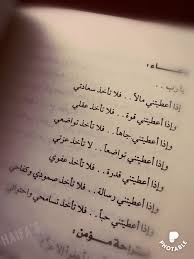 دعـــاء:
يارب..
إذا أعطيتني مالاً.. فلا تأخذ سعادتي
وإذا أعطيتني قوة.. فلا تأخذ عقلي
وإذا أعطيتني جاهاً.. فلا تأخذ تواضعي
وإذا أعطيتني تواضعاً.. فلا تأخذ عزتي
وإذا أعطيتني قدرة.. فلا تأخذ عفوي
وإذا أعطيتني رسالة.. فلا تأخذ صمودي وكفاحي
وإذا أعطيتني حباً.. فلا تأخذ تسامحي
مؤمن:
HAIFA'S
PHOTABLE